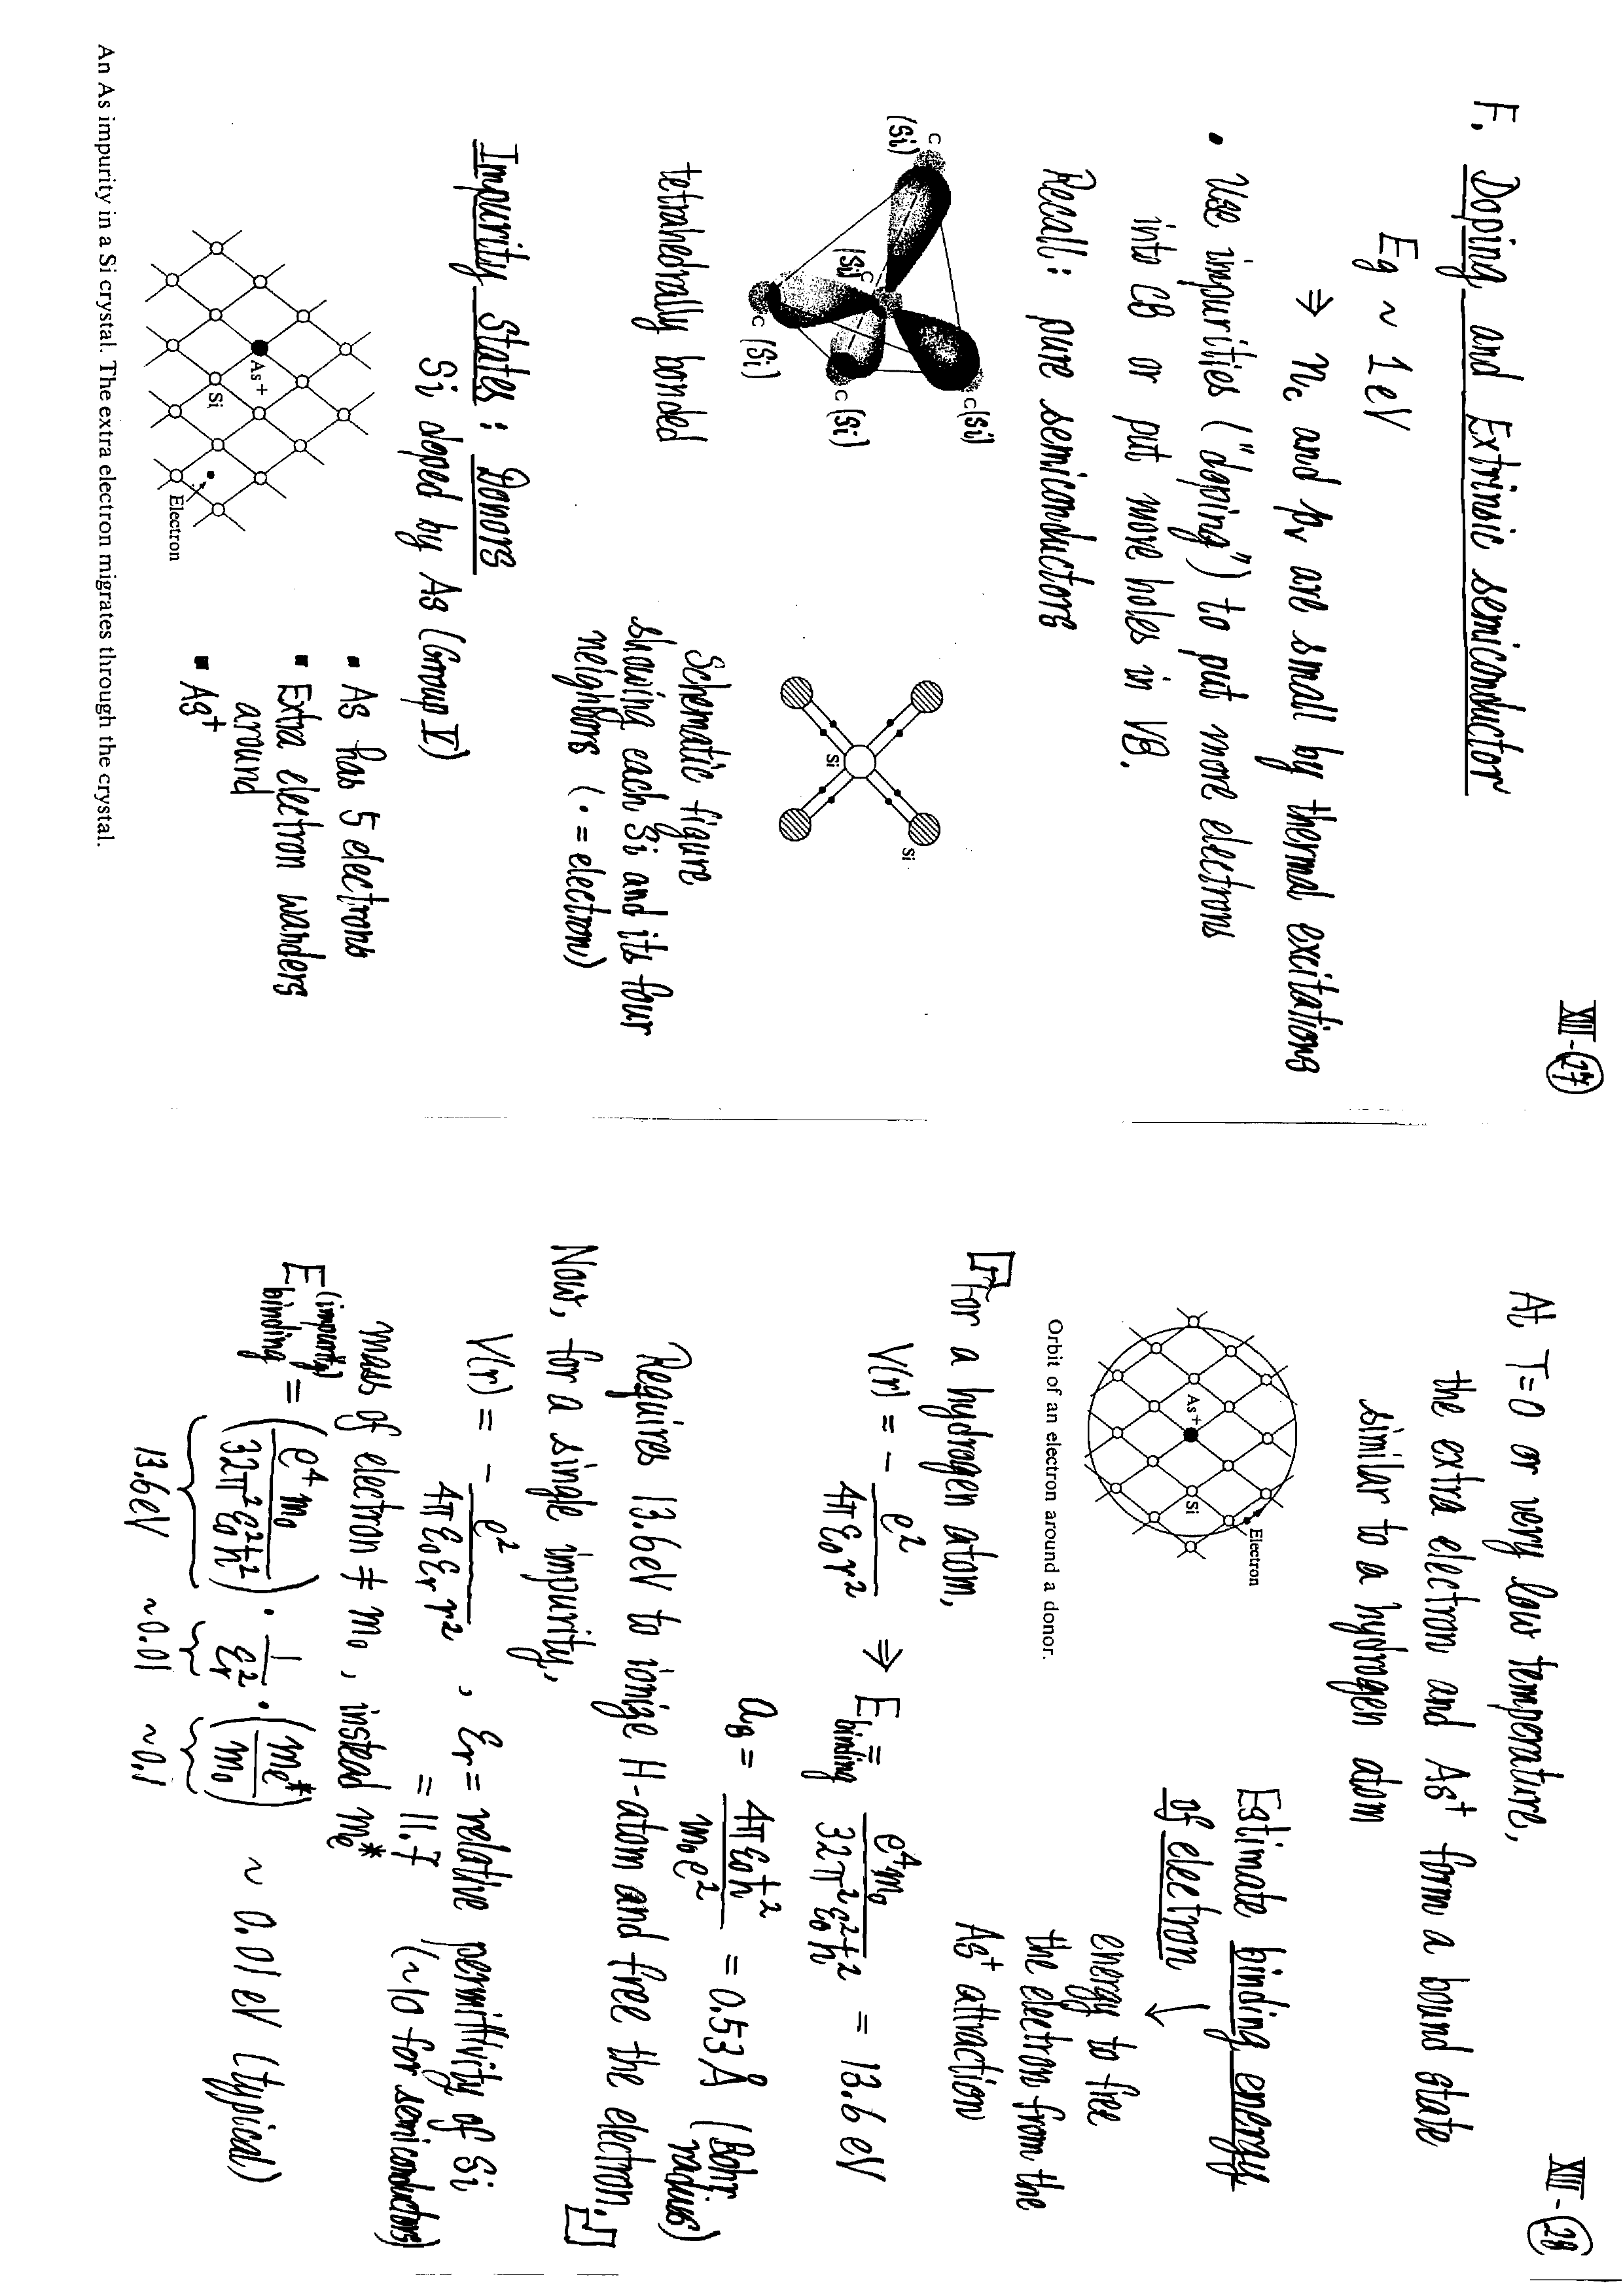 XIII-(27)
F. Doping and Extrinsic semiconductor
Eg ~ 1 eV
⇒ nc and pv are small by thermal excitations
• Use impurities ("doping") to put more electrons
into CB or put more holes in VB.
Recall: pure semiconductors
C
(Si)
C
(Si)
C (Si)
C (Si)
C (Si)
tetrahedrally bonded
Si
Si
Schematic figure
showing each Si and its four
neighbors (• = electron)
Impurity States: Donors
Si doped by As (Group V)
As+
Si
Electron
▪ As has 5 electrons
▪ Extra electron wanders
around
▪ As⁺
An As impurity in a Si crystal. The extra electron migrates through the crystal.
XIII-(28)
At T=0 or very low temperature,
the extra electron and As⁺ form a bound state
similar to a hydrogen atom
As+
Si
Electron
Orbit of an electron around a donor.
Estimate binding energy
of electron
energy to free
the electron from the
As⁺ attraction
For a hydrogen atom,
V(r) = - e² / 4πε₀r² ⇒ E binding = e⁴m₀ / 32π²ε₀²ħ² = 13.6 eV
a_B = 4πε₀ħ² / m₀e² = 0.53 Å (Bohr radius)
Requires 13.6eV to ionize H-atom and free the electron.
Now, for a single impurity,
V(r) = - e² / 4πε₀εr r² , εr = relative permittivity of Si
= 11.7 (~10 for semiconductors)
mass of electron ≠ m₀, instead me*
E binding (impurity) = (e⁴m₀ / 32π²ε₀²ħ²) · 1/εr² · (me*/m₀) ~ 0.01 eV (typical)
13.6eV ~0.01 ~0.1